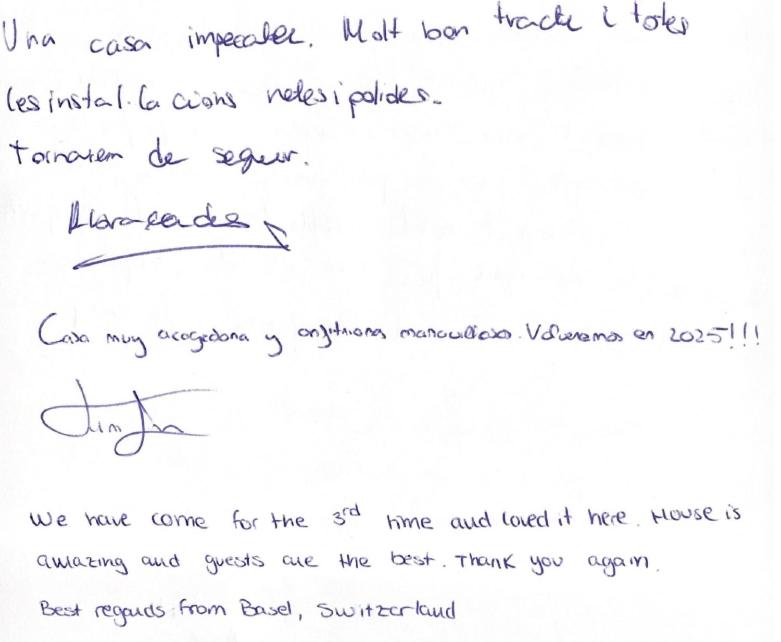 Una casa impecable. Molt bon tracte i totes
les instal.lacions netes i polides.
Tornarem de segur.
Casa muy acogedora y anfitriones maravillosos. Volveremos en 2025!!!
We have come for the 3rd time and loved it here. House is
amazing and guests are the best. Thank you again.
Best regards from Basel, Switzerland